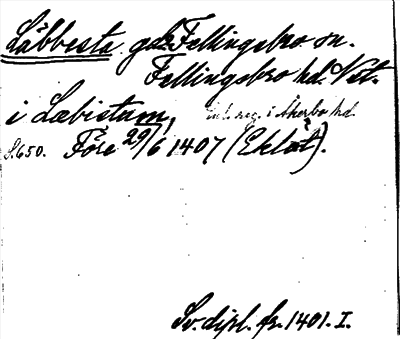 Läbbesta gd. Fellingsbro sn.
Fellingsbro hd. Vstm.
i Læbistum, inl. reg. i Åkerbo hd.
S. 650. Före 29/6 1407 (Ekläst).
Sv. dipl. fr. 1401. I.